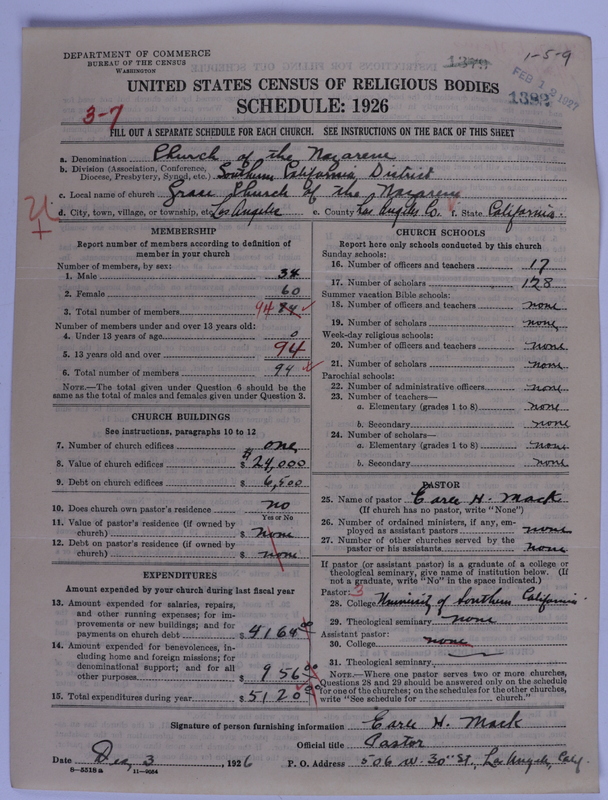 DEPARTMENT OF COMMERCE
BUREAU OF THE CENSUS
WASHINGTON
1379
1-5-9
FEB 12 1927
1392
UNITED STATES CENSUS OF RELIGIOUS BODIES
SCHEDULE: 1926
3-7
FILL OUT A SEPARATE SCHEDULE FOR EACH CHURCH. SEE INSTRUCTIONS ON THE BACK OF THIS SHEET
a. Denomination Church of the Nazarene
b. Division (Association, Conference, Diocese, Presbytery, Synod, etc.) Southern California District
c. Local name of church Grace Church of the Nazarene
d. City, town, village, or township, etc. Los Angeles e. County Los Angeles Co. f. State California.
MEMBERSHIP
Report number of members according to definition of
member in your church
Number of members, by sex:
1. Male 34
2. Female 60
3. Total number of members 94
Number of members under and over 13 years old:
4. Under 13 years of age 0
5. 13 years old and over 94
6. Total number of members 94
NOTE.—The total given under Question 6 should be the
same as the total of males and females given under Question 3.
CHURCH BUILDINGS
See instructions, paragraphs 10 to 12
7. Number of church edifices one
8. Value of church edifices $ 24,000
9. Debt on church edifices $ 6,500
10. Does church own pastor's residence? no
Yes or No
11. Value of pastor's residence (if owned by
church) $ none
12. Debt on pastor's residence (if owned by
church) $ none
EXPENDITURES
Amount expended by your church during last fiscal year
13. Amount expended for salaries, repairs,
and other running expenses; for im-
provements or new buildings; and for
payments on church debt $ 4164 00
14. Amount expended for benevolences, in-
cluding home and foreign missions; for
denominational support; and for all
other purposes $ 956 00
15. Total expenditures during year $ 5120 00
CHURCH SCHOOLS
Report here only schools conducted by this church
Sunday schools:
16. Number of officers and teachers 17
17. Number of scholars 128
Summer vacation Bible schools:
18. Number of officers and teachers none
19. Number of scholars none
Week-day religious schools:
20. Number of officers and teachers none
21. Number of scholars none
Parochial schools:
22. Number of administrative officers none
23. Number of teachers—
a. Elementary (grades 1 to 8) none
b. Secondary none
24. Number of scholars—
a. Elementary (grades 1 to 8) none
b. Secondary none
PASTOR
25. Name of pastor Earle H. Mack
(If church has no pastor, write "None")
26. Number of ordained ministers, if any, em-
ployed as assistant pastors none
27. Number of other churches served by the
pastor or his assistants none
If pastor (or assistant pastor) is a graduate of a college or
theological seminary, give name of institution below. (If
not a graduate, write "No" in the space indicated.)
Pastor: 3
28. College University of Southern California
29. Theological seminary none
Assistant pastor:
30. College none
31. Theological seminary
NOTE.—Where one pastor serves two or more churches,
Questions 28 and 29 should be answered only on the schedule
for one of the churches; on the schedules for the other churches,
write "See schedule for church."
Signature of person furnishing information Earle H. Mack
Official title Pastor
Date Dec, 3, 1926 P. O. Address 506 W. 30th St., Los Angeles, Calif.
8-5518 a 11-9054